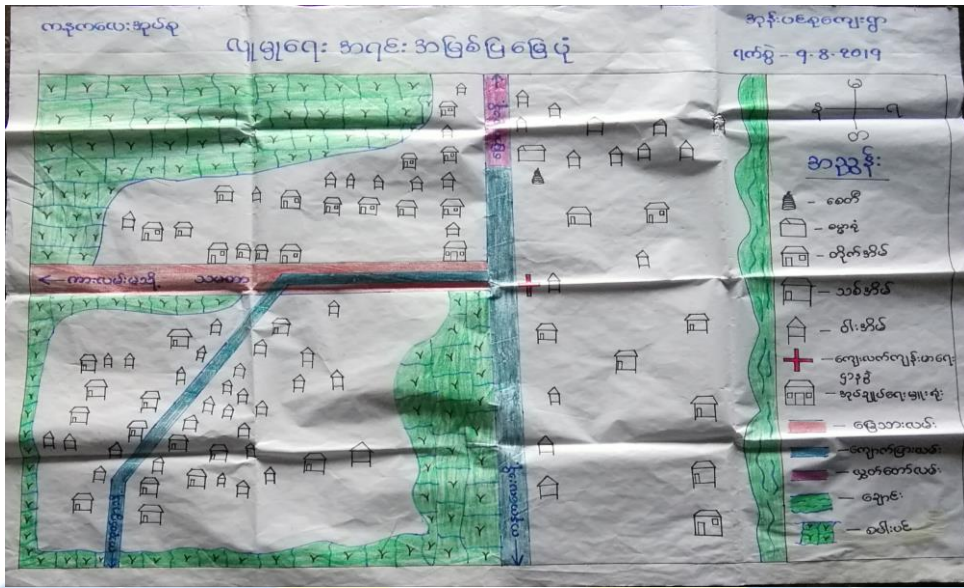 ကနကလေးအုပ်စု
လူမှုရေး အရင်းအမြစ်ပြမြေပုံ
အုန်းပင်စုကျေးရွာ
ရက်စွဲ - ၅.၈.၂၀၁၅
မ
န
ရ
တ
အညွှန်း
စေတီ
ဓမ္မာရုံ
တိုက်အိမ်
သစ်အိမ်
ဝါးအိမ်
ကျေးလက်ကျန်းမာရေး
ဌာနခွဲ
အုပ်ချုပ်ရေးမှူးရုံး
မြေသားလမ်း
ကျောက်ခြားလမ်း
လွှတ်တော်လမ်း
ချောင်း
စပါးပင်
← ကားလမ်းမသို့
သမတာ
← ကနကလေးသို့